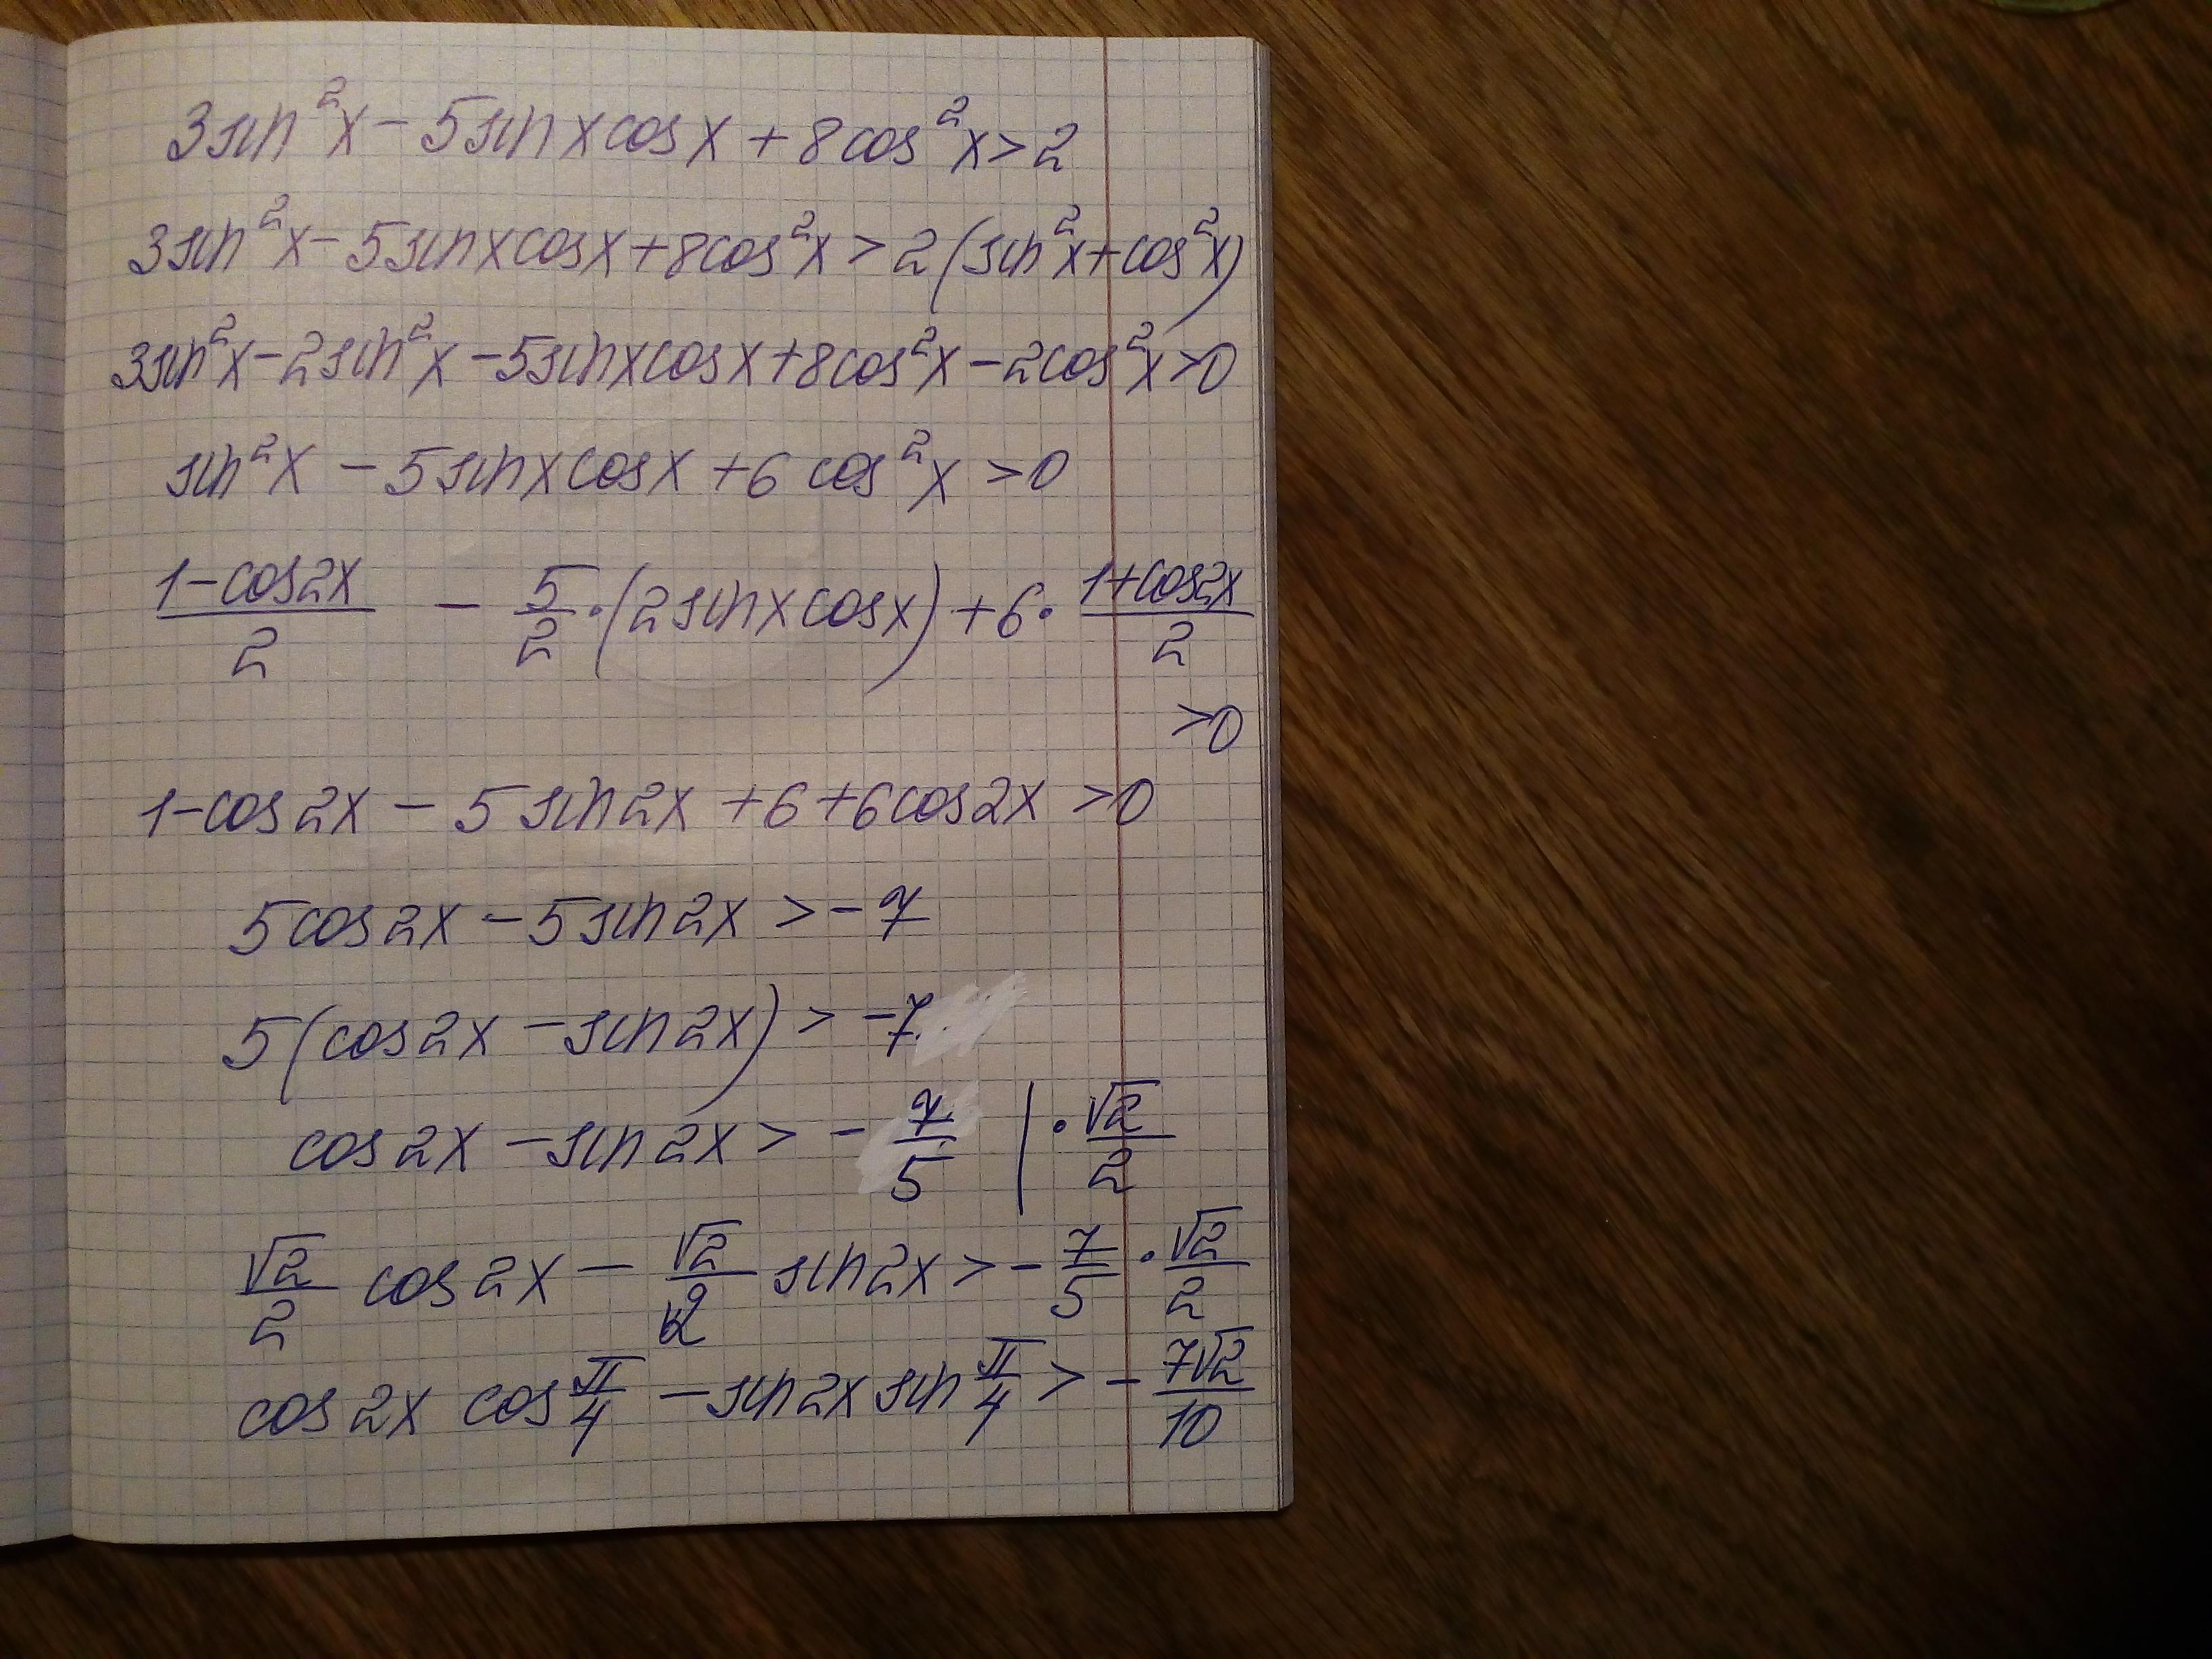 3sin²x − 5sinxcosx + 8cos²x > 2
3sin²x − 5sinxcosx + 8cos²x > 2(sin²x + cos²x)
3sin²x − 2sin²x − 5sinxcosx + 8cos²x − 2cos²x > 0
sin²x − 5sinxcosx + 6cos²x > 0
(1 − cos2x)/2 − 5/2 · (2sinxcosx) + 6 · (1 + cos2x)/2
> 0
1 − cos2x − 5sin2x + 6 + 6cos2x > 0
5cos2x − 5sin2x > −7
5(cos2x − sin2x) > −7
cos2x − sin2x > −7/5 | · √2/2
√2/2 cos2x − √2/2 sin2x > −7/5 · √2/2
cos2x cos π/4 − sin2x sin π/4 > −7√2/10